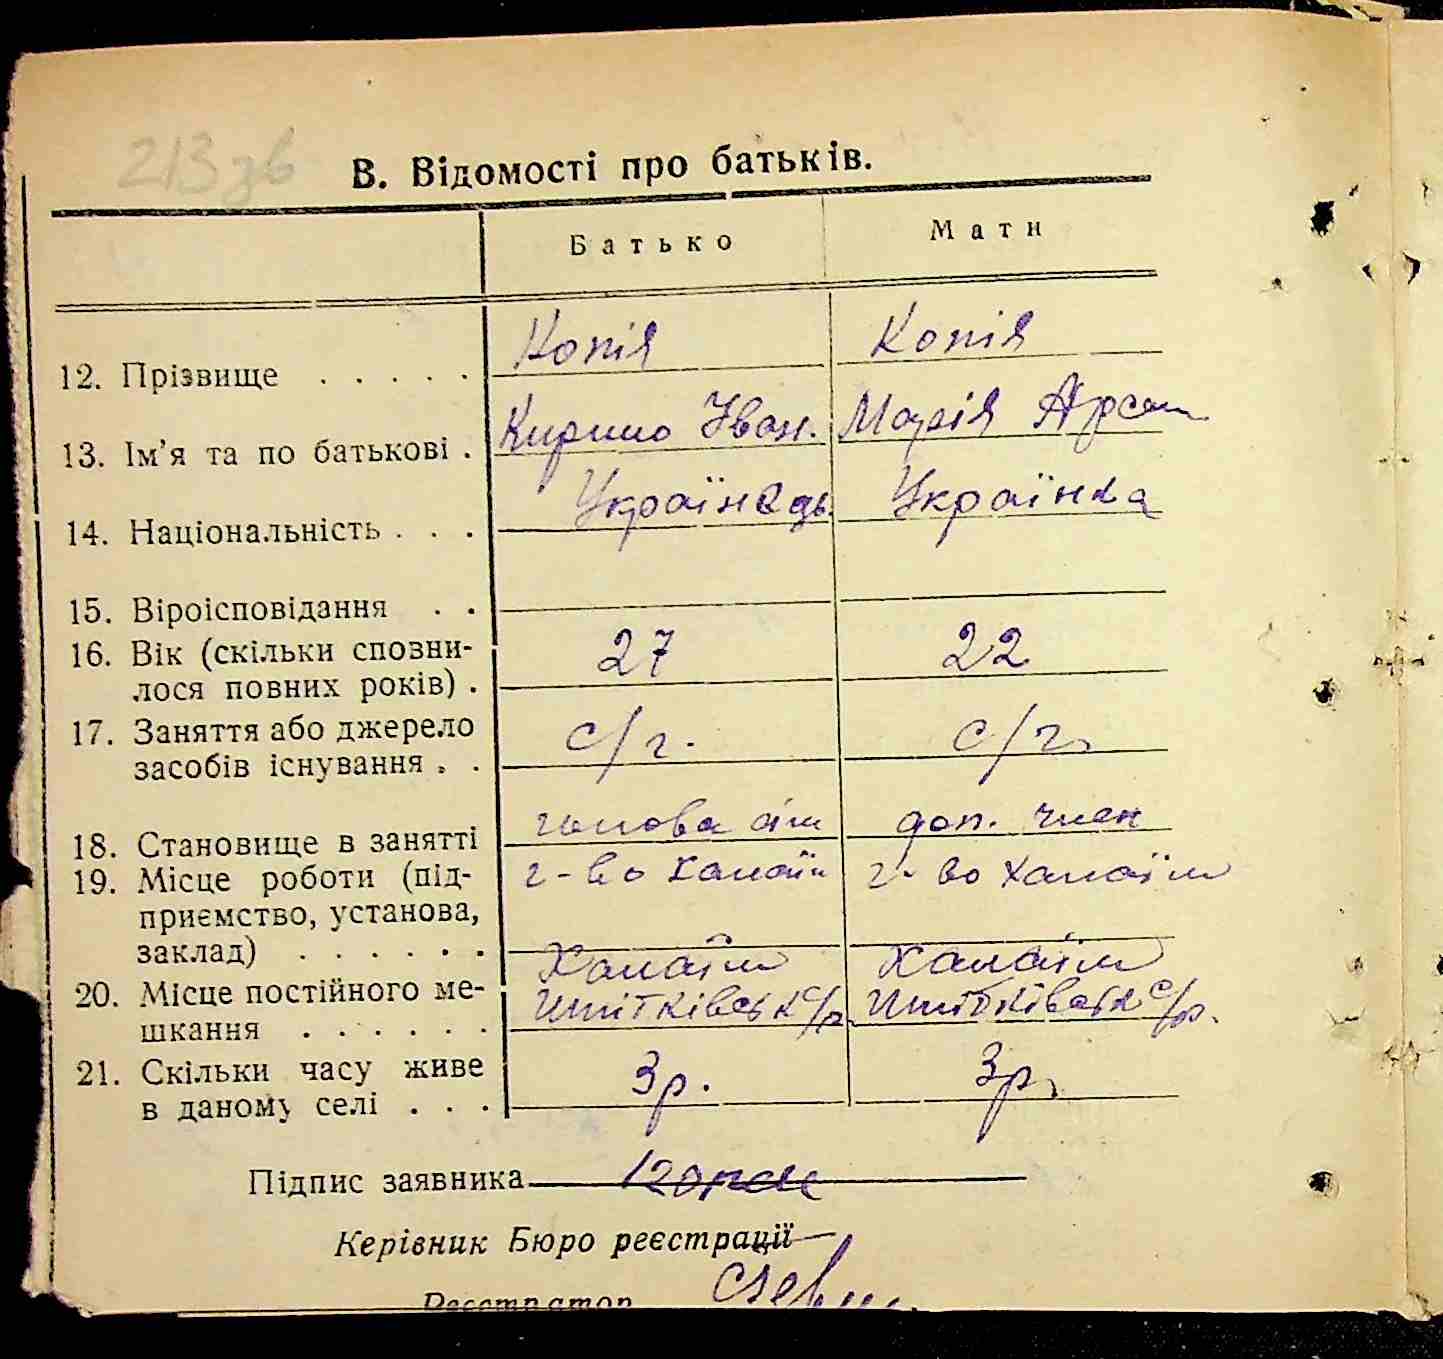 213 зв
В. Відомості про батьків.
Батько Мати
12. Прізвище . . . . . Копія Копія
13. Ім’я та по батькові . Кирило Іван. Марія Арсен
14. Національність . . . Українець Українка
15. Віроісповідання . .
16. Вік (скільки сповни- 27 22
лося повних років) .
17. Заняття або джерело с/г. с/г.
засобів існування . .
18. Становище в занятті голова сім доп. член
19. Місце роботи (під- г-во Халаїм г-во Халаїм
приємство, установа,
заклад) . . . . . .
20. Місце постійного ме- Халаїм Халаїм
шкання . . . . . . с/р. с/р.
21. Скільки часу живе 3р. 3р.
в даному селі . . .
Підпис заявника
Керівник Бюро реєстрації
Реєстратор